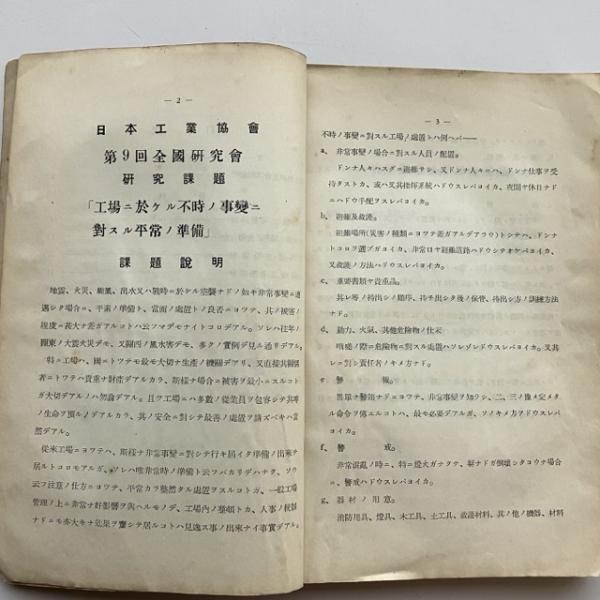 — 2 —
日本工業協會
第9回全國研究會
研究課題
「工場ニ於ケル不時ノ事變ニ
對スル平常ノ準備」
課題說明
地震、火災、颱風、出水又ハ戰時ニ於ケル空襲ナドノ如キ非常事變ニ遭
遇シタ場合ニ、平素ノ準備ト、當面ノ處置トノ良否ニヨツテ、其ノ被害ノ
程度ニ甚大ナ差ガアルコトハ云フマデモナイトコロデアル。ソレハ往年ノ
關東ノ大震火災デモ、又關西ノ風水害デモ、多クノ實例デ見ル通リデアル。
特ニ工場ハ、國ニトツテモ最モ大切ナ生產ノ機關デアリ、又直接共關係
者ニトツテハ貴重ナ財產デアルカラ、斯樣ナ場合ニ被害ヲ最小ニスルコト
ガ大切デアルノハ勿論デアル。且ツ工場ハ多數ノ從業員ヲ包容シテ其等
ノ生命ヲ預ルノデアルカラ、其ノ安全ニ對シテ最善ノ處置ヲ講ズベキハ當
然デアル。
從來工場ニヨツテハ、斯樣ナ非常事變ニ對シテ行キ屆イタ準備ノ出來テ
居ルトコロモアルガ、ソレハ唯非常時ノ準備ト云フバカリデハナク、ソウ
云フ注意ノ仕方ニヨツテ、平常カラ整然タル處置ヲスルコトガ、一般工場
管理ノ上ニ非常ナ好影響ヲ與ヘルモノデ、工場內ノ整頓トカ、人事ノ規制
ナドニモ亦大キナ効果ヲ齎シテ居ルコトハ見逸ス事ノ出來ナイ事實デアル。
— 3 —
不時ノ事變ニ對スル工場ノ處置トハ例ヘバ——
a. 非常事變ノ場合ニ對スル人員ノ配置。
ドンナ人々ハスグニ避難サシ、又ドンナ人々ニハ、ドンナ仕事ヲ受
持タストカ、或ハ又其指揮系統ハドウスレバヨイカ、夜間ヤ休日ナド
ニハドウ手配ヲスレバヨイカ。
b. 避難及救護。
避難場所(災害ノ種類ニヨツテ差ガアルデアラウ)トシテハ、ドンナ
トコロヲ選ブガヨイカ、非常口ヤ避難道路ハドウシテオケバヨイカ、
又救護ノ方法ハドウスレバヨイカ。
c. 重要書類ヤ貴重品。
其レ等ノ持出シノ順序、持チ出シタ後ノ保管、持出シ方ノ訓練方法
ナド。
d. 動力、火氣、其他危險物ノ仕末
咄嗟ノ際ニ危險物ニ對スル處置ハソレゾレドウスレバヨイカ。又其
レニ對シ責任者ノキメ方ナド。
e. 警報。
異單ナ警報ナドニヨツテ、非常事變ヲ知ラシ、二、三ノ豫メ定メタ
ル命令ヲ傳エルコトハ、最モ必要デアルガ、ソノキメ方ヲドウスレバ
ヨイカ。
f. 警戒。
非常混亂ノ時ニ、特ニ燈火ガナクテ、塀ナドガ倒壞シタヨウナ場合
ニ、警戒ハドウスレバヨイカ。
g. 器材ノ用意。
消防用具、燈具、木工具、土工具、救護材料、其ノ他ノ機器、材料